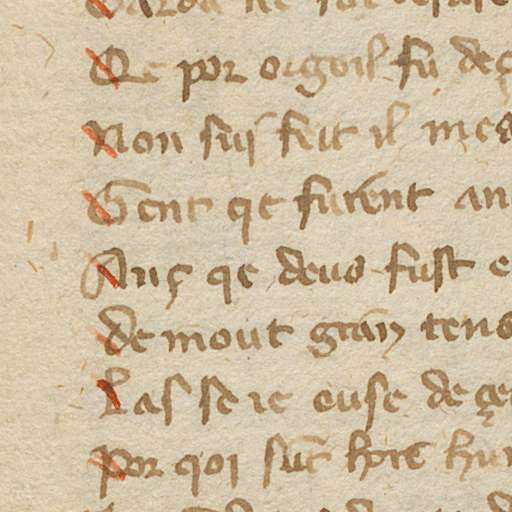 Qe por orgoil fu deç
Non sui feit il mes
Gent qe furent an
Anç qe deus fust e
De mout gran tens
Las se ie euse de çe
Por qoi sut hyre hu